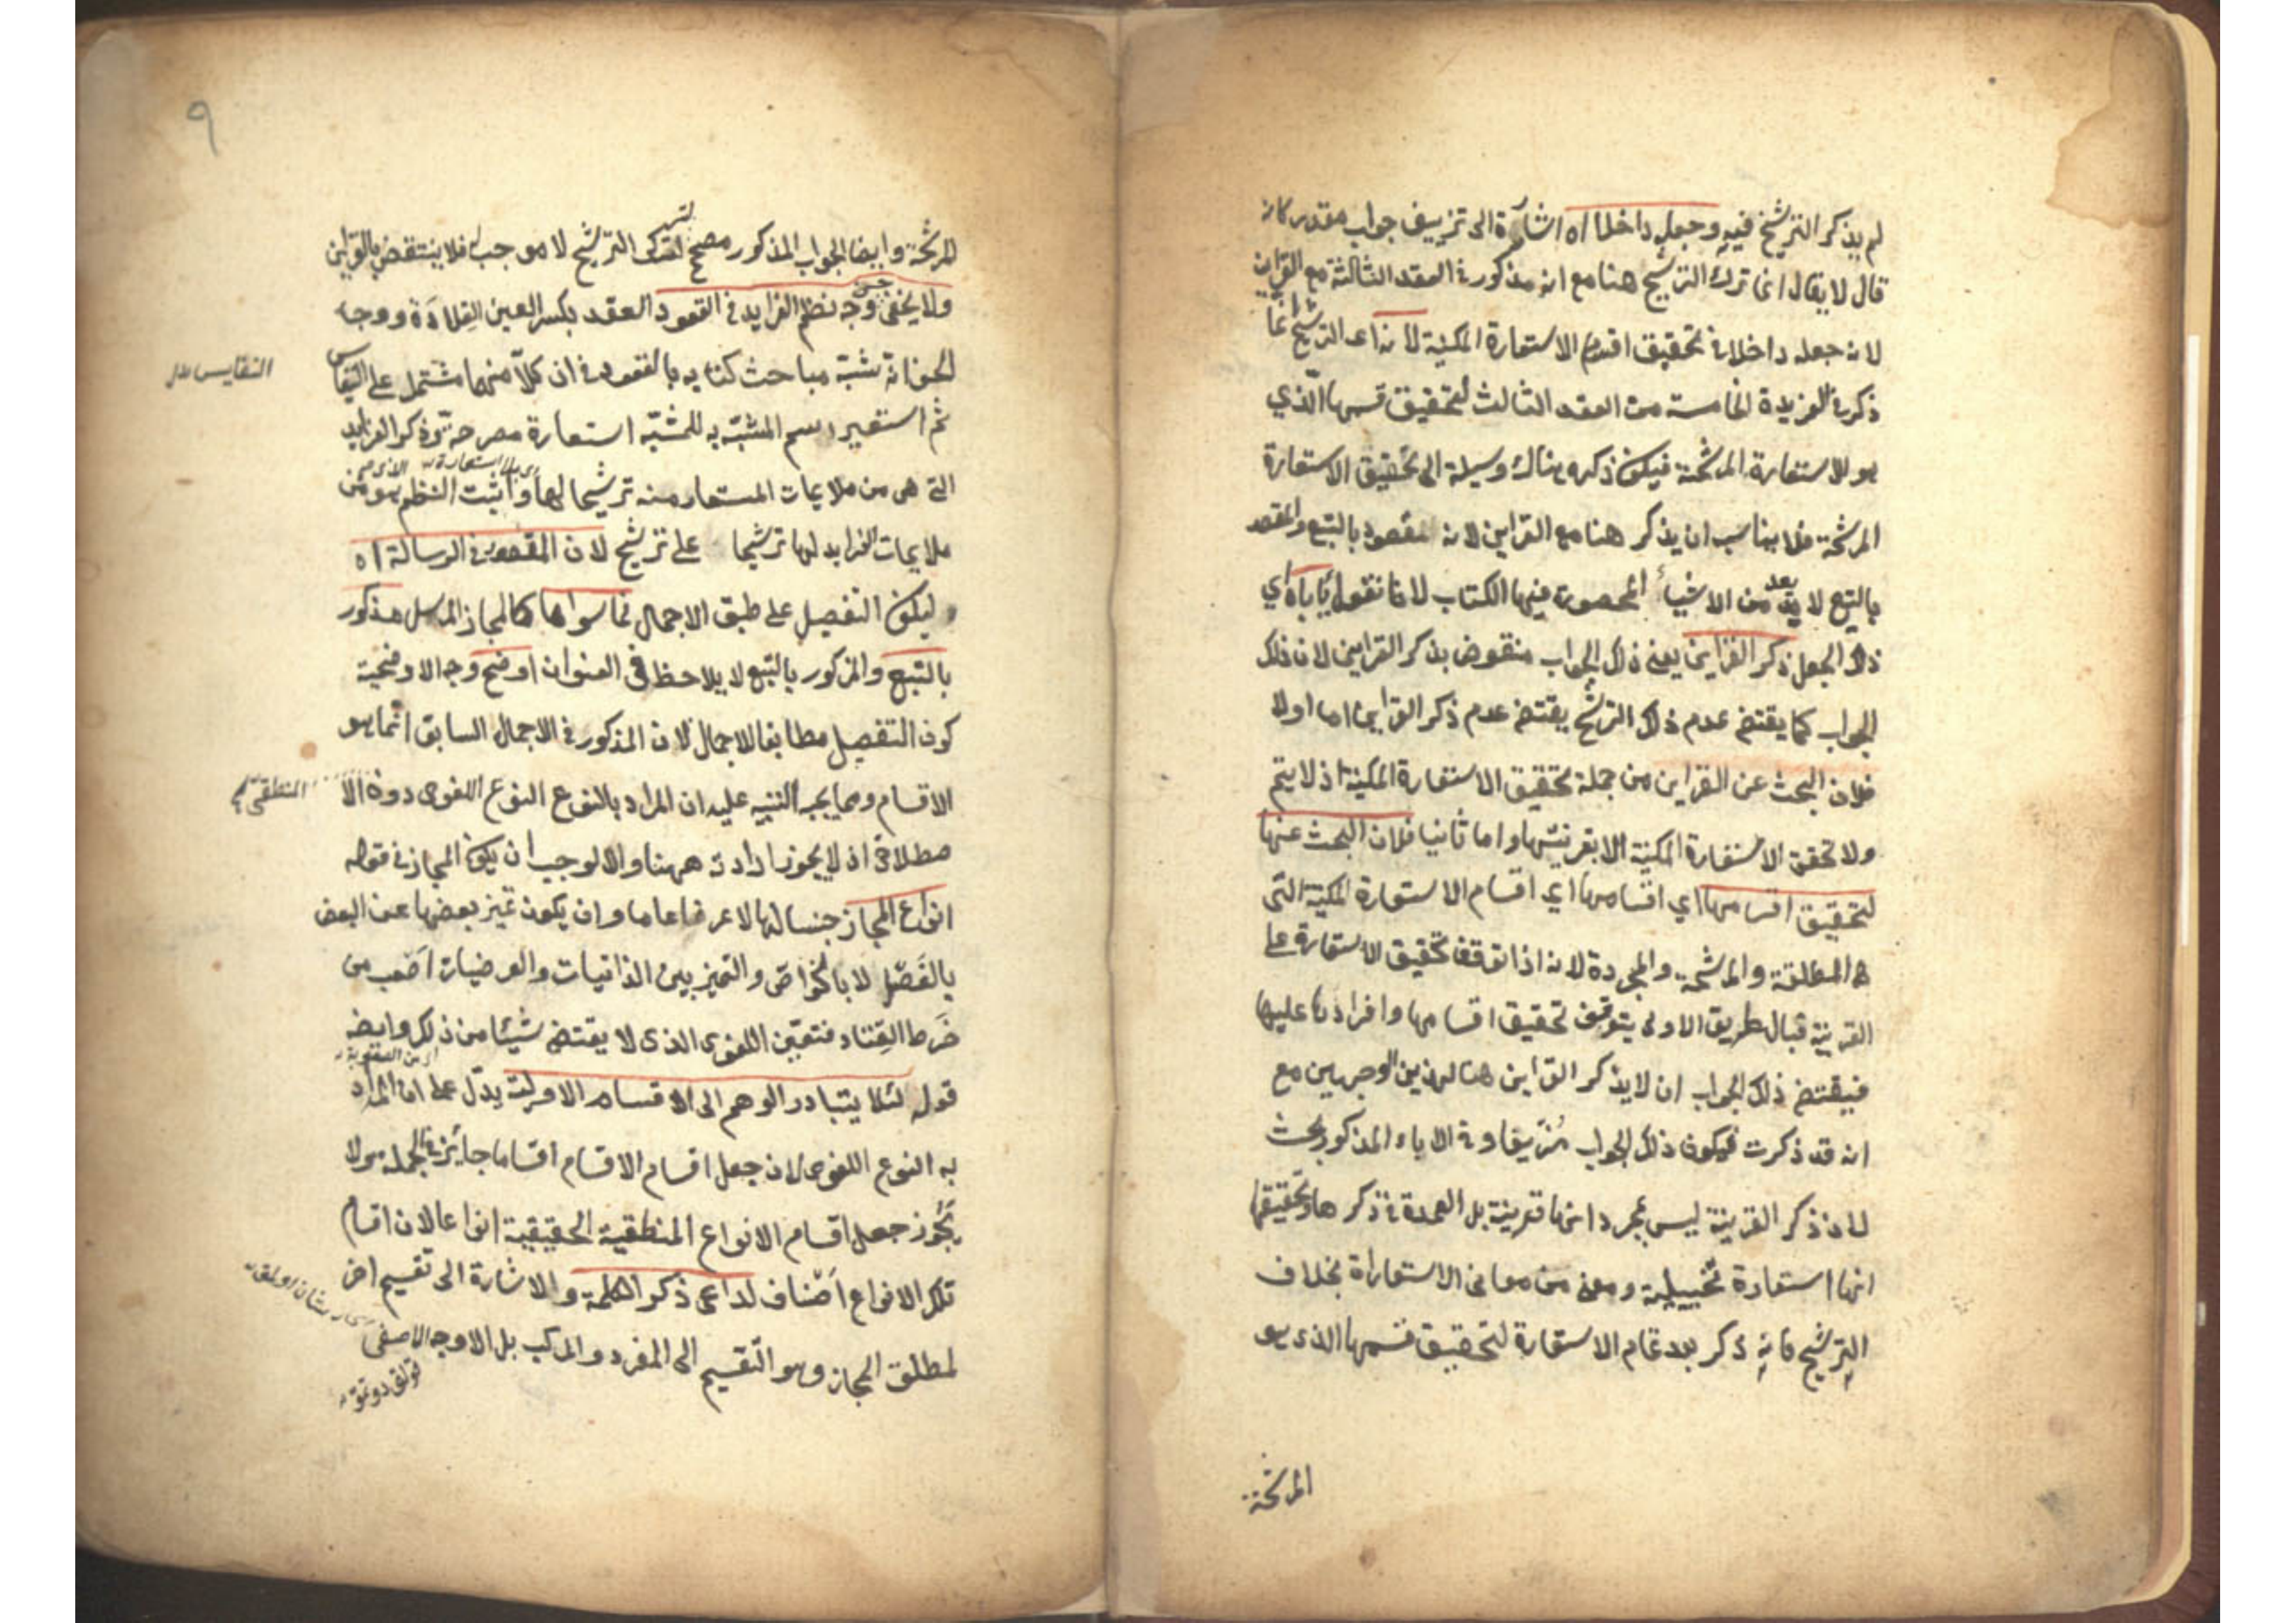 لم يذكر الترشيح فيه وجعله داخلا اه اشارة الى تزييف جواب مقدر كانه
قال لا يقال انما ترك الترشيح هنا مع انه مذكور في العقد الثالثة مع القراين
لانه جعله داخلا في تحقيق اقسام الاستعارة المكنية لانه اعد الترشيح انما
ذكر في الفريدة الخامسة من العقد الثالث لتحقيق قسمها الذي
هو للاستعارة المرشحة فيكون ذكره هناك وسيلة الى تحقيق الاستعارة
المرشحة فلا يناسب ان يذكر هنا مع القراين لانه مقصود بالتبع والمقصد
بالتبع لا يعد من الاشياء المحصورة فيها الكتاب لانا نقول يأباه اي
ذلك الجعل ذكر القراين يعني ذلك الجواب منقوض بذكر القراين لان ذلك
الجواب كما يقتضي عدم ذلك الترشيح يقتضي عدم ذكر القراين اما اولا
فلان البحث عن القراين من جملة تحقيق الاستعارة المكنية اذ لا يتم
ولا تحقق الاستعارة المكنية الا بقرينتها واما ثانيا فلان البحث عنها
لتحقيق اقسامها اي اقسامها اي اقسام الاستعارة المكنية التي
هي المطلقة والمرشحة والمجردة لانه اذا توقف تحقيق الاستعارة على
القرينة فبالطريق الاولى يتوقف تحقيق اقسامها وافرادها عليها
فيقتضي ذلك الجواب ان لا يذكر القراين هنا لهذين الوجهين مع
انه قد ذكرت فيكون ذلك الجواب مزيفا وفي الاباء المذكور بحث
لان ذكر القرينة ليس بمجرد انها قرينة بل العمدة في ذكرها وتحقيقها
انها استعارة تخييلية ومعنى من معاني الاستعاراة بخلاف
الترشيح فانه ذكر بعد تمام الاستعارة لتحقيق قسمها الذي هو
المرشحة
٩
المرشحة وايضا الجواب المذكور مصحح لترك الترشيح لا موجب له فلا ينتقض بالقراين
ولا يخفى حسن وجه نظم الفرايد في العقود العقد بكسر العين القلادة ووجه
الحسن انه شبه مباحث كتابه بالعقود في ان كلا منها مشتمل على النفايس
النفايس
ثم استعير اسم المشبه به للمشبه استعارة مصرحة وذكر الفرايد
التي هي من ملايمات المستعار منه ترشيحا لها واثبت النظم هو من
ملايمات الفرايد لها ترشيحا على ترشيح لان المقصود في الرسالة اه
ليكون التفصيل على طبق الاجمال فما سواها كالمجاز المرسل مذكور
بالتبع والمذكور بالتبع لا يلاحظ في العنوان اوضح وجه الاوضحية
كون التفصيل مطابقا للاجمال لان المذكور في الاجمال السابق انما هو
الاقسام ومما يجب التنبيه عليه ان المراد بالنوع النوع اللغوي دون الا
المنطقي
صطلاحي اذ لا يجوز ارادته ههنا والا لوجب ان يكون المجاز في قوله
انواع المجاز جنسا لها لا عرضا عاما وان يكون تميز بعضها عن البعض
بالفصل لا بالخواص والتميز بين الذاتيات والعرضيات اصعب من
خرط القتاد فتعين اللغوي الذي لا يقتضي شيئا من ذلك وايضا
قوله لئلا يتبادر الوهم الى الاقسام الاولية يدل على ان المراد
به النوع اللغوي لان جعل اقسام الاقسام اقساما جائز في الجملة ولا
يجوز جعل اقسام الانواع المنطقية الحقيقية انواعا لان اقسام
تلك الانواع اصناف لداعي ذكر الكلمة والاشارة الى تقسيم اخر
لمطلق المجاز وهو التقسيم الى المفرد والمركب بل الاوجه الاصفى